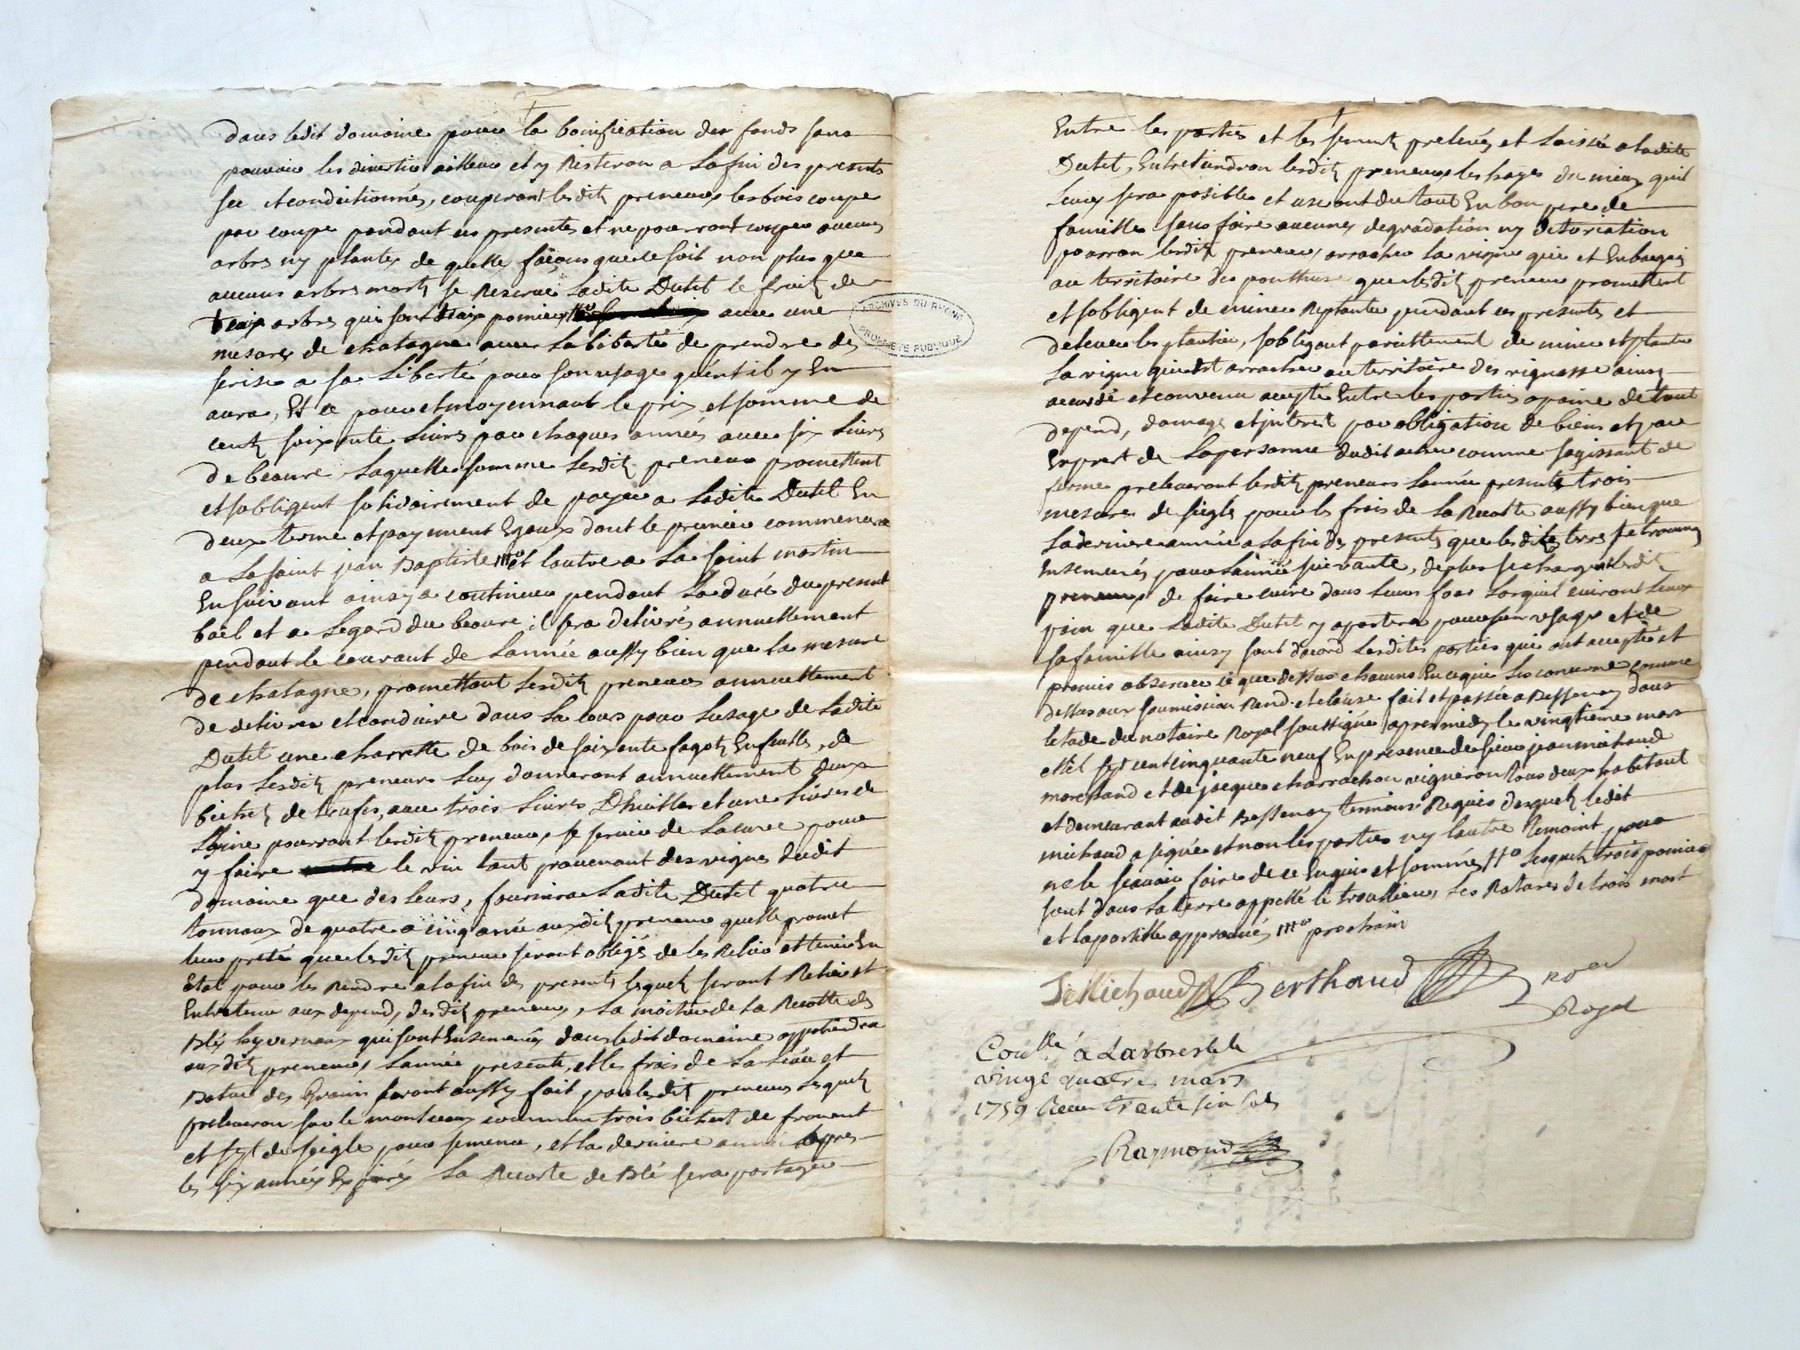 dans ledit domaine pour la bonification des fonds sans
pouvoir les divertir ailleur et y Resteron a la fin des presents
sec et conditionnés, couperont lesdits preneurs les bois coupe
par coupe pendant ces presentes et ne pourront couper aucuns
arbres ny plantes de quelle façons que ce soit non plus que
aucuns arbres morts se Reserve ladite Dutel le fruit de
trois arbres qui sont trois pomiers avec une
mesure de chatagne avec la liberté de prendre des
serise a sa Liberté pour son usage quent il y En
aura, Et ce pour et moyennant le prix et somme de
cent soixante Livres par chaques années avec six Livres
de beaure Laquelle somme lesdits preneurs promettent
et sobligent solidairement de payer a Ladite Dutel En
deux terme et payement Egaux dont le premier commencera
a La saint jean Baptiste et lautre a La saint martin
Ensuivant ainsy a continuer pendant La durée du present
bail et a Legard du beaure il sera délivrés annuellement
pendant le courant de Lannée aussy bien que la mesure
de chatagne, promettant lesdits preneurs annuellement
de delivrer et conduire dans La cour pour Lusage de Ladite
Dutel une charrette de bois de soixente fagots En feuilles, de
plus lesdits preneurs Luy donneront annuellement deux
bichets de trufes, avec trois Livres D'huilles et une Livres de
Laine pourront lesdits preneurs se servir de La cuve pour
y faire le vin tant provenant des vignes dudit
domaine que des Leurs, fournira Ladite Dutel quatre
tonnaux de quatre a cinq anée auxdits preneurs quelle promet
leur preté que lesdits preneurs seront obligés de les Relier et tenir En
état pour les Rendre a la fin des presents lesquels seront Reliés et
Entretenu aux depend, desdits preneurs, La moitié de La Recolte des
Blés hyvernaux qui sont Ensemencés dans ledit domaine appartiendra
auxdits preneurs Lannée presente, et les frais de La levée et
Batue des Grains seront aussy fait par lesdits preneurs lesquels
preleveron sur le monceau commun trois bichets de froment
et sept de seigle pour semence, et la derniere année apres
les six années Expirés La Recolte de Blé sera partagée
Entre les parties et les semence prelevés et Laissée a ladite
Dutel, Entretiendron lesdits preneurs les hayes du mieux quil
leurs sera posible et useront du tout En bon pere de
famille sans faire aucunes degradation ny detoriation
pourron lesdits preneurs arracher la vigne qui et
au territoire des que lesdits preneurs promettent
et sobligent de miner Replanter pendant ces presentes et
delever les plantier, sobligent pareillement de miner et planter
La vigne qui est arraché au territoire des vignasse ainsy
acordé et convenu accepté Entre les parties a paine de tout
depend, domages et interest par obligation de biens et par
Exprest de La personne dudit comme sagissant de
ferme preleveront lesdits preneurs Lannée presente trois
mesures de siegle pour les frais de La Recolte aussy bien que
La derniere année a La fin des presents que lesdites terres se trouverons
Ensemencés pour Lannée suivante, deplus se charge lesdits
preneurs de faire cuire dans leurs four Lorsquil cuiront leurs
pain que Ladite Dutel y aportera pour son usage et de
sa famille ainsy sont dacord Lesdites parties qui ont accepté et
promis observer ce que dessus chacuns En ce qui Les concerne comme
dessus aux soumission Rend. et clause fait et passée a Bessenay dans
letude du notaire Royal soussigné apres medy le vingtieme mars
Mil sept cent cinquante neuf En presence de sieur jean michaud
marchand et de jacque charrachon vigneron tous deux habitant
et demeurant audit Bessenay temoins Requis desquels ledit
michaud a signé et non les parties ny lautre Remoint pour
ne le scavoir faire de ce Enquis et sommés lesquels trois pomier
sont dans La terre appellé le troullieu, Les Ratures de trois most
et la postille approuvés prochain
J Michaud Berthaud noer
Royal
Coullé à Larbresle le
vinge quatre mars
1759 Receu trente six sols
Raymond
ARCHIVES DU RHONE
PROPRIETE PUBLIQUE